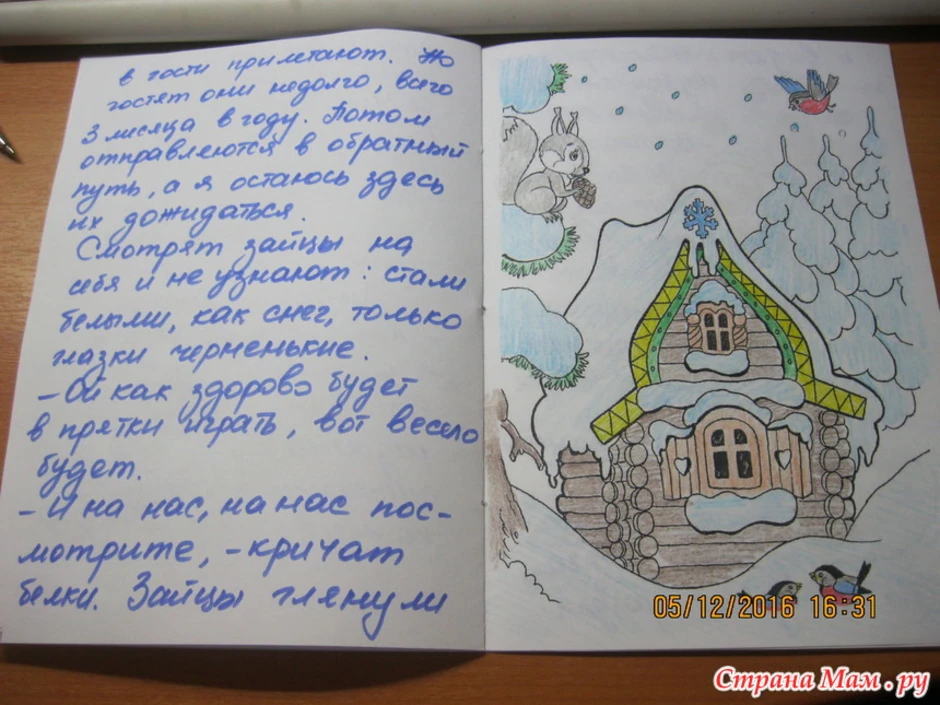 в гости прилетают. Но
гостят они недолго, всего
3 месяца в году. Потом
отправляются в обратный
путь, а я остаюсь здесь
их дожидаться.
Смотрят зайцы на
себя и не узнают: стали
белыми, как снег, только
глазки черненькие.
- Ой как здорово будет
в прятки играть, вот весело
будет.
- И на нас, на нас пос-
мотрите, - кричат
белки. Зайцы глянули
05/12/2016 16:31
Страна Мам.ру